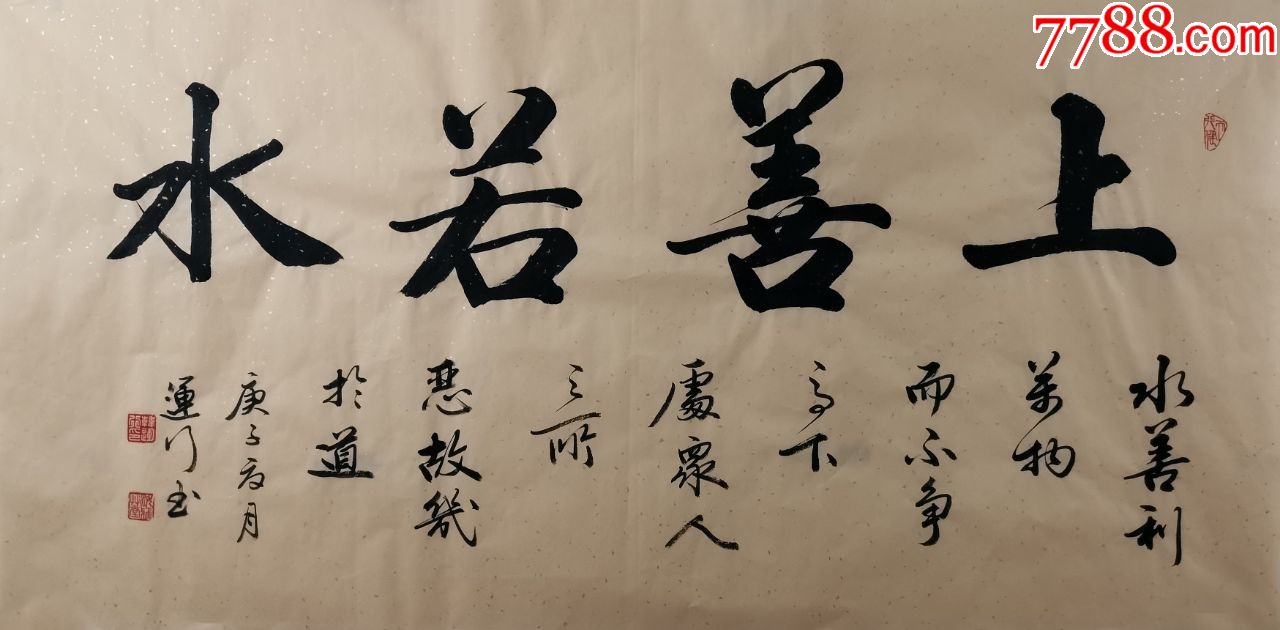 7788.com
上善若水
水善利
萬物
而不争
高下
處眾人
之所
惡故幾
於道
庚子夏月
運行书